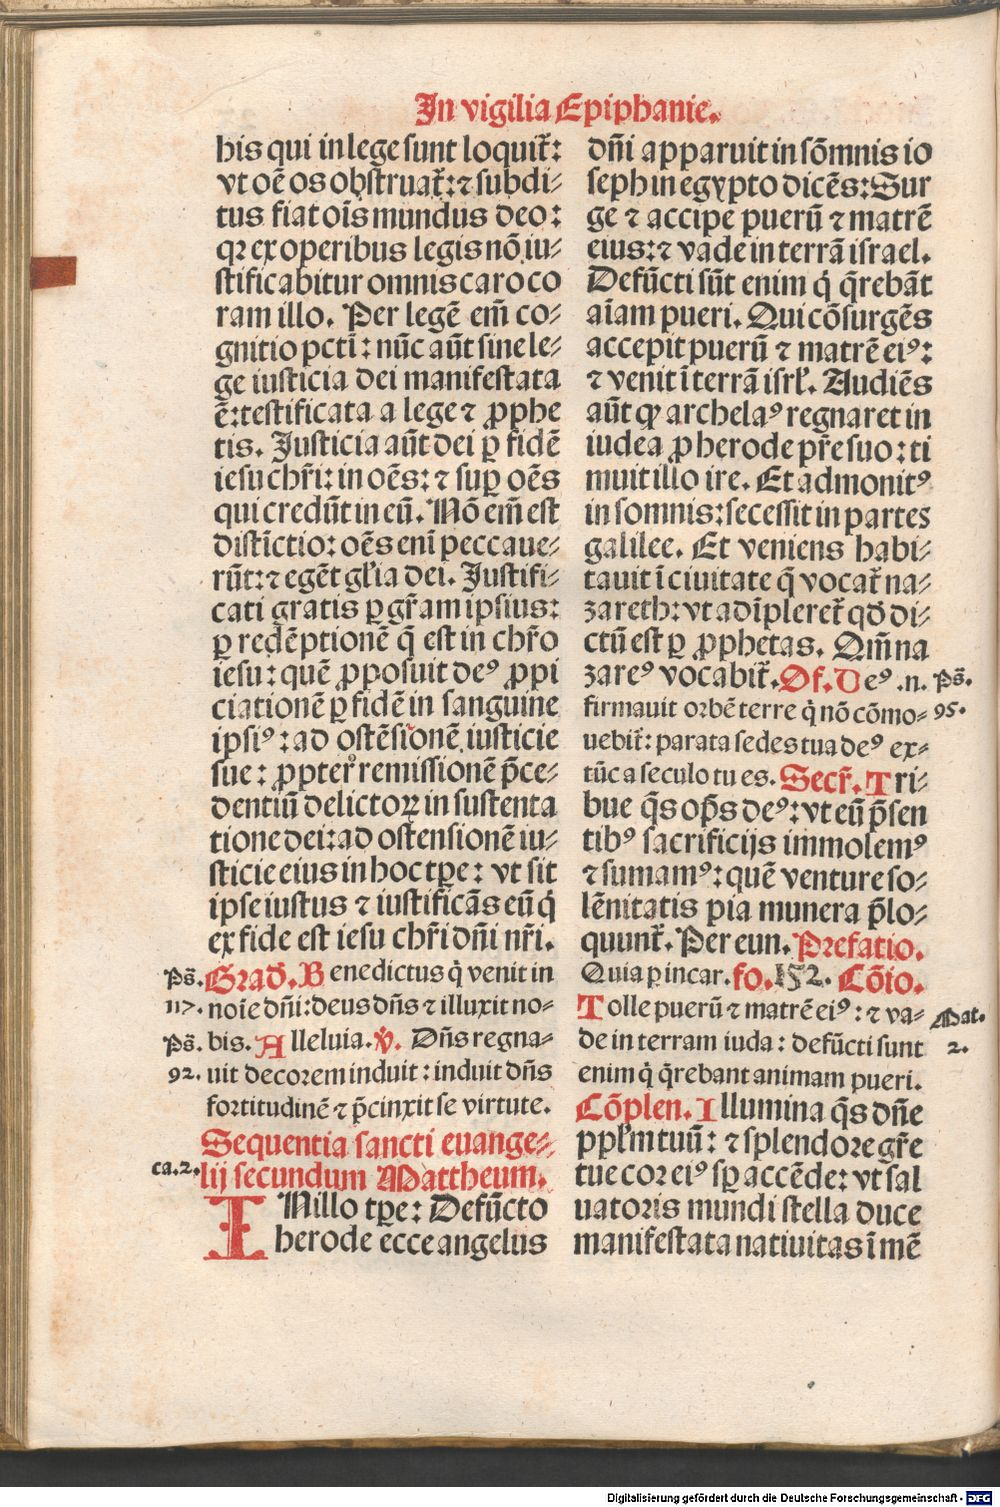 In vigilia Epiphanie.
his qui in lege sunt loquit̃:
vt oẽ os obstruat̃: ⁊ subdi⸗
tus fiat oı̃s mundus deo:
qꝛ ex operibus legis nõ iu⸗
stificabitur omnis caro co
ram illo. Per legẽ em̃ co⸗
gnitio pcti̅: nũc aũt sine le⸗
ge iusticia dei manifestata
ẽ: testificata a lege ⁊ ꝓphe
tis. Iusticia aũt dei ꝑ fidẽ
iesu chr̃i: in oẽs: ⁊ suꝑ oẽs
qui credũt in eũ. Nõ em̃ est
distı̃ctio: oẽs enı̃ peccaue⸗
rũt: ⁊ egẽt gl̃ia dei. Iustifi⸗
cati gratis ꝑ gr̃am ipsius:
ꝑ redẽptionẽ q̃ est in chr̃o
iesu: quẽ ꝓposuit deꝰ ꝓpi
ciationẽ ꝑ fidẽ in sanguine
ipsiꝰ: ad ostẽsionẽ iusticie
sue: ꝓpter̃ remissionẽ p̃ce⸗
dentiũ delictoꝝ in sustenta
tione dei: ad ostensionẽ iu⸗
sticie eius in hoc tꝑe: vt sit
ipse iustus ⁊ iustificãs eũ q̇
ex fide est iesu chr̃i dñi nr̃i.
Ps̃. Grad̃. Benedictus q̇ venit in
117. noı̃e dñi: deus dñs ⁊ illuxit no⸗
Ps̃. bis. Alleluia. ℣. Dñs regna⸗
92. uit decorem induit: induit dñs
fortitudinẽ ⁊ p̃cinxit se virtute.
Sequentia sancti euange⸗
ca.2. lij secundum Mattheum.
IN illo tꝑe: Defũcto
herode ecce angelus
dñi apparuit in sõmnis io
seph in egypto dicẽs: Sur
ge ⁊ accipe puerũ ⁊ matrẽ
eius: ⁊ vade in terrã israel.
Defũcti sũt enim q̇ q̃rebãt
aı̃am pueri. Qui cõsurgẽs
accepit puerũ ⁊ matrẽ eiꝰ:
⁊ venit ı̃ terrã isrl̃. Audiẽs
aũt ꝙ archelaꝰ regnaret in
iudea ꝓ herode pr̃e suo: ti
muit illo ire. Et admonitꝰ
in somnis: secessit in partes
galilee. Et veniens habi⸗
tauit ı̃ ciuitate q̃ vocat̃ na⸗
zareth: vt adı̃pleret̃ qd̃ di⸗
ctũ est ꝑ ꝓphetas. Qm̃ na
zareꝰ vocabit̃. Of. Deꝰ .n. Ps̃.
firmauit orbẽ terre q̇ nõ cõmo⸗ 95.
uebit̃: parata sedes tua deꝰ ex⸗
tũc a seculo tu es. Secr̃. Tri⸗
bue q̃s op̃s deꝰ: vt eũ p̃sen
tibꝰ sacrificijs immolemꝰ
⁊ sumamꝰ: quẽ venture so⸗
lẽnitatis pia munera p̃lo⸗
quunt̃. Per eun. Prefatio.
Quia ꝑ incar. fo. 152. Cõio.
Tolle puerũ ⁊ matrẽ eiꝰ: ⁊ va⸗ Mat.
de in terram iuda: defũcti sunt 2.
enim q̇ q̃rebant animam pueri.
Cõplen. Illumina q̃s dñe
ppl̃m tuũ: ⁊ splendore gr̃e
tue cor eiꝰ sꝑ accẽde: vt sal
uatoris mundi stella duce
manifestata natiuitas ı̃ mẽ
Digitalisierung gefördert durch die Deutsche Forschungsgemeinschaft - DFG